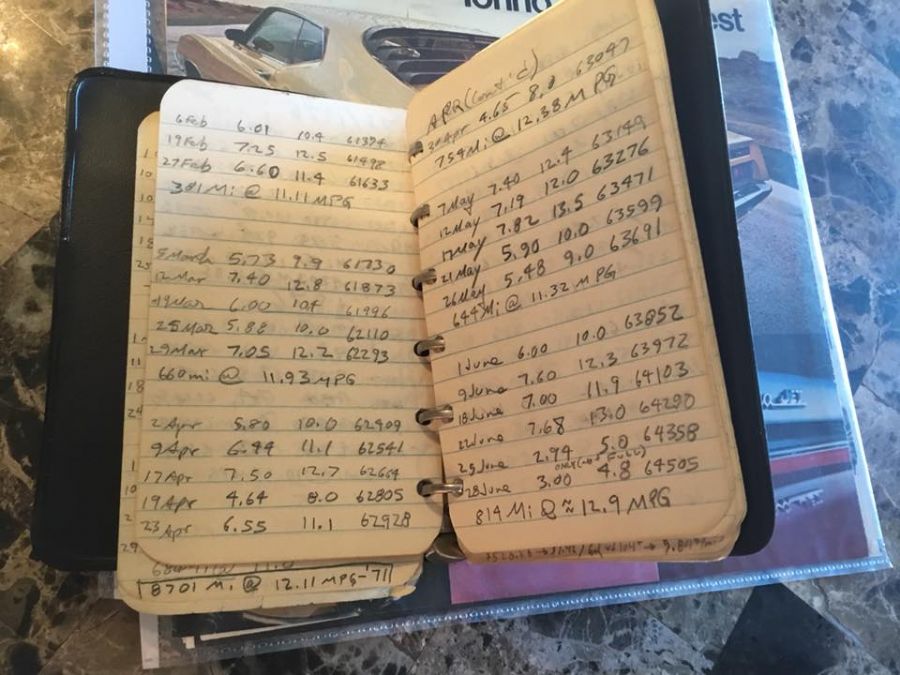 est
6 Feb 6.01 10.4 61394
19 Feb 7.25 12.5 61498
27 Feb 6.60 11.4 61633
381 Mi @ 11.11 MPG
5 March 5.73 9.9 61730
12 Mar 7.40 12.8 61873
19 Mar 6.00 10.4 61996
25 Mar 5.88 10.0 62110
29 Mar 7.05 12.2 62293
660 mi @ 11.93 MPG
2 Apr 5.80 10.0 62409
9 Apr 6.44 11.1 62541
17 Apr 7.50 12.7 62664
19 Apr 4.64 8.0 62805
23 Apr 6.55 11.1 62928
8701 Mi @ 12.11 MPG-'71
APR (cont'd)
30 Apr 4.65 8.0 63047
754 Mi @ 12.38 MPG
7 May 7.40 12.4 63149
12 May 7.19 12.0 63276
17 May 7.82 13.5 63471
21 May 5.90 10.0 63599
26 May 5.48 9.0 63691
644 Mi @ 11.32 MPG
1 June 6.00 10.0 63852
9 June 7.60 12.3 63972
18 June 7.00 11.9 64103
22 June 7.68 13.0 64290
25 June 2.94 5.0 64358
ONLY (not full)
28 June 3.00 4.8 64505
814 Mi @ ≈ 12.9 MPG